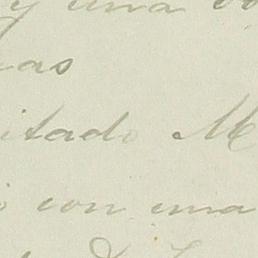 y una
as
itado M
con una